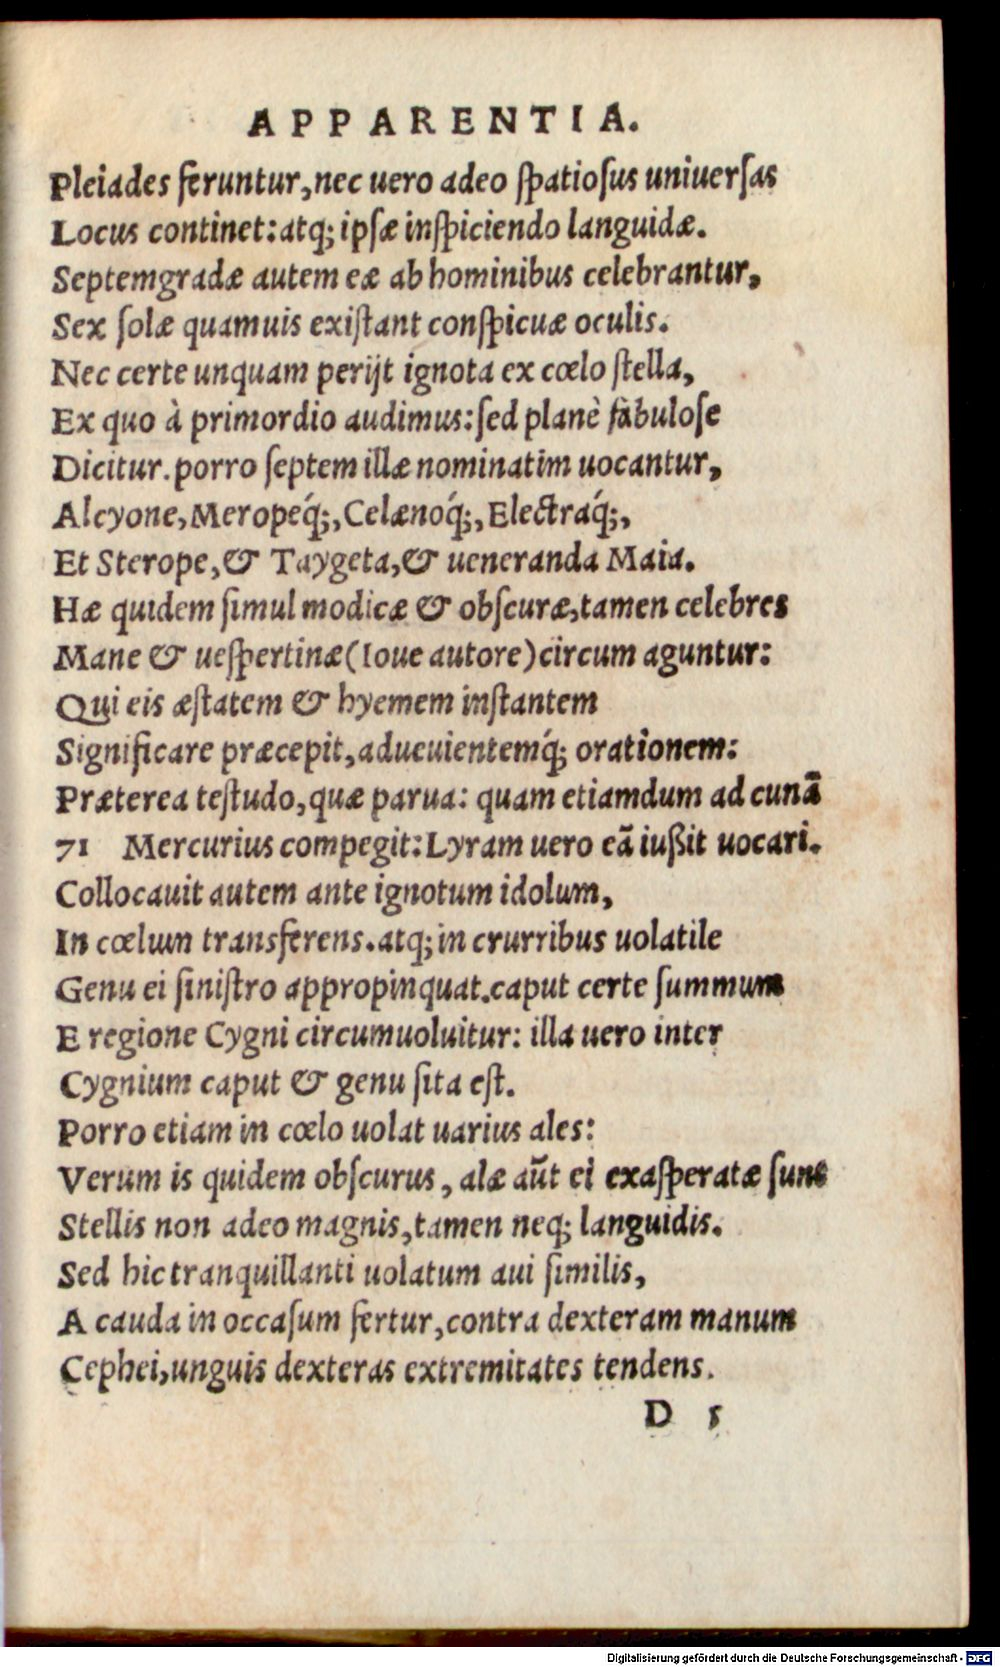 APPARENTIA.
Pleiades feruntur, nec uero adeo spatiosus uniuersas
Locus continet: atq; ipsæ inspiciendo languidæ.
Septemgradæ autem eæ ab hominibus celebrantur,
Sex solæ quamuis existant conspicuæ oculis.
Nec certe unquam perijt ignota ex cœlo stella,
Ex quo à primordio audimus: sed planè fabulose
Dicitur. porro septem illæ nominatim uocantur,
Alcyone, Meropeq́;, Celænoq́;, Electraq́;,
Et Sterope, & Taygeta, & ueneranda Maia.
Hæ quidem simul modicæ & obscuræ, tamen celebres
Mane & uespertinæ (Ioue autore) circum aguntur:
Qui eis æstatem & hyemem instantem
Significare præcepit, adueuientemq́; orationem:
Præterea testudo, quæ parua: quam etiamdum ad cunā
71 Mercurius compegit: Lyram uero eā iußit uocari.
Collocauit autem ante ignotum idolum,
In cœlum transferens. atq; in crurribus uolatile
Genu ei sinistro appropinquat. caput certe summum
E regione Cygni circumuoluitur: illa uero inter
Cygnium caput & genu sita est.
Porro etiam in cœlo uolat uarius ales:
Verum is quidem obscurus, alæ aūt ei exasperatæ sunt
Stellis non adeo magnis, tamen neq; languidis.
Sed hic tranquillanti uolatum aui similis,
A cauda in occasum fertur, contra dexteram manum
Cephei, unguis dexteras extremitates tendens.
D 5
Digitalisierung gefördert durch die Deutsche Forschungsgemeinschaft - DFG